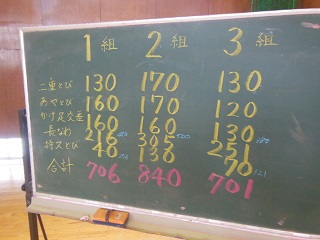 1組 2組 3組
二重とび 130 170 130
あやとび 160 170 120
かけ足交差 160 160 130
長なわ 216 305 251
持久とび 40 138 70
合計 706 840 701